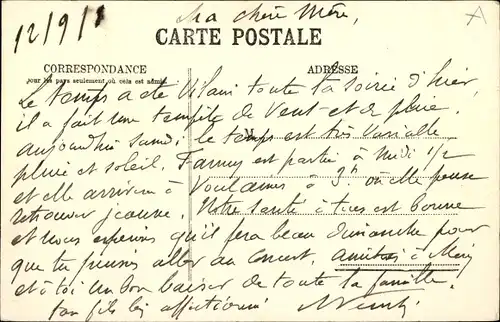 12/9/1
Ma chère Mère,
CARTE POSTALE
CORRESPONDANCE
ADRESSE
pour les pays seulement où cela est admis
Le temps a été vilain toute la soirée d'hier,
il a fait une tempête de vent et de pluie.
aujourd'hui samedi le temps est très variable
pluie et soleil. Fanny est partie à midi 1/2
et elle arrivera à à 3h où elle pense
retrouver jeanne. Notre santé à tous est bonne
et nous espérons qu'il fera beau dimanche pour
que tu puisses aller au concert. amitiés à
et à toi un bon baiser de toute la famille.
ton fils bien affectionné